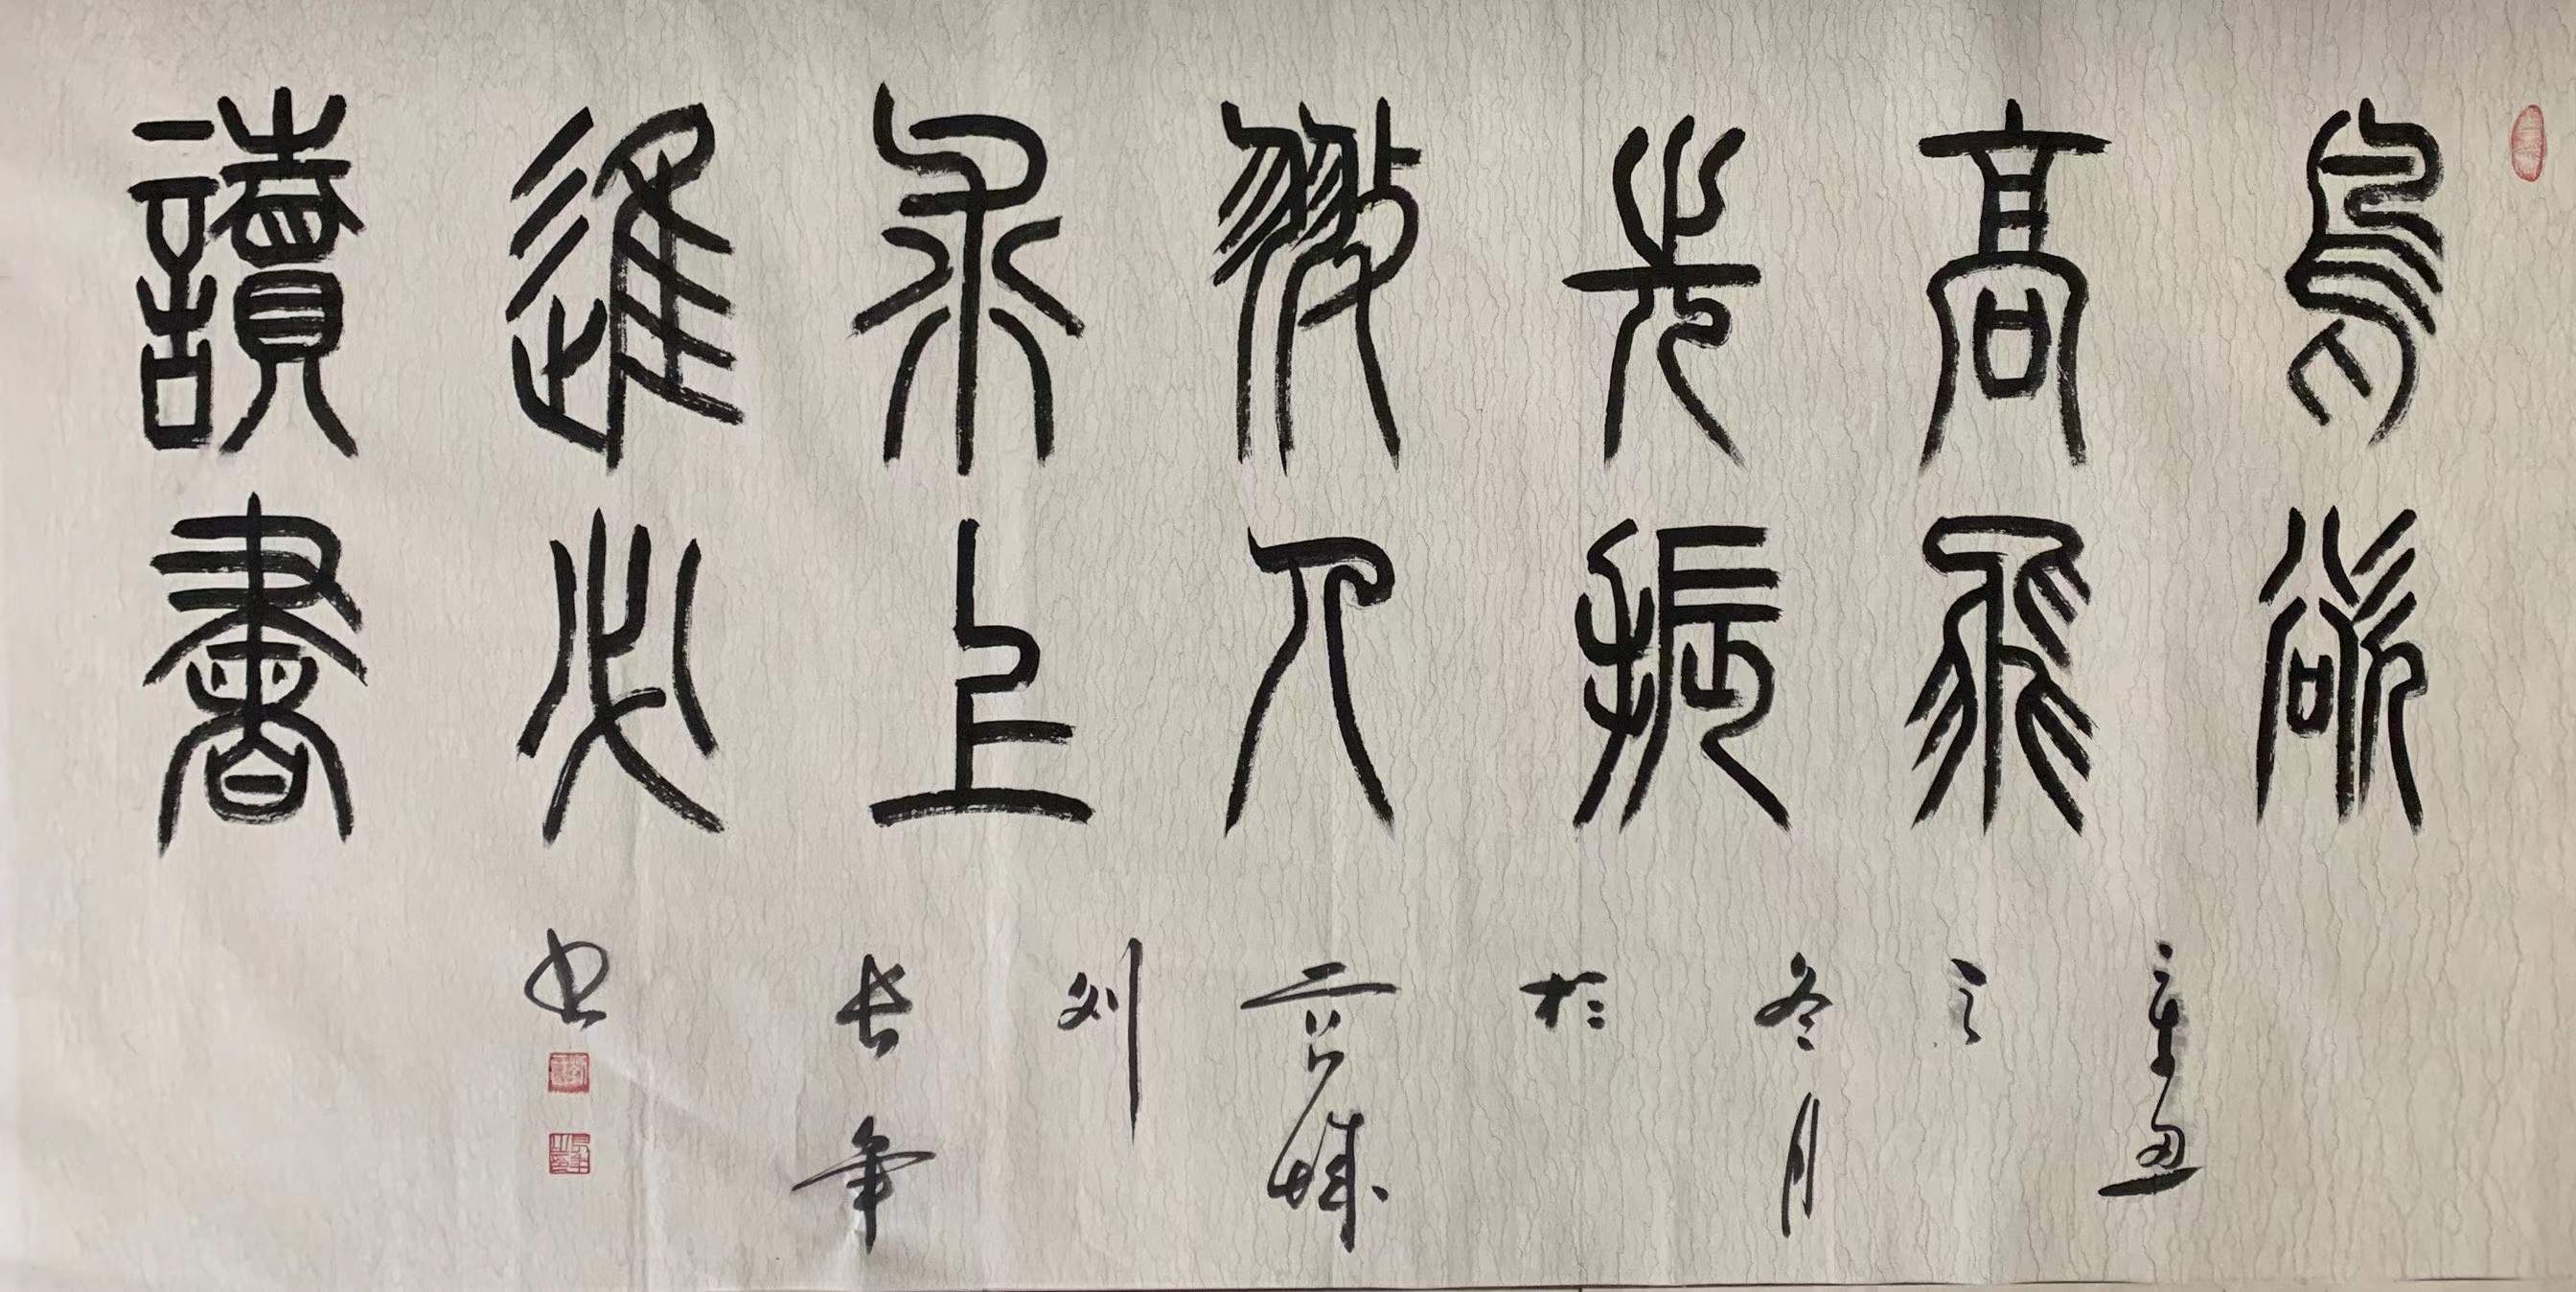 鳥欲
高飛
先振
翅人
求上
進必
讀書
辛丑
之
冬月
於
城
刘
长年
书